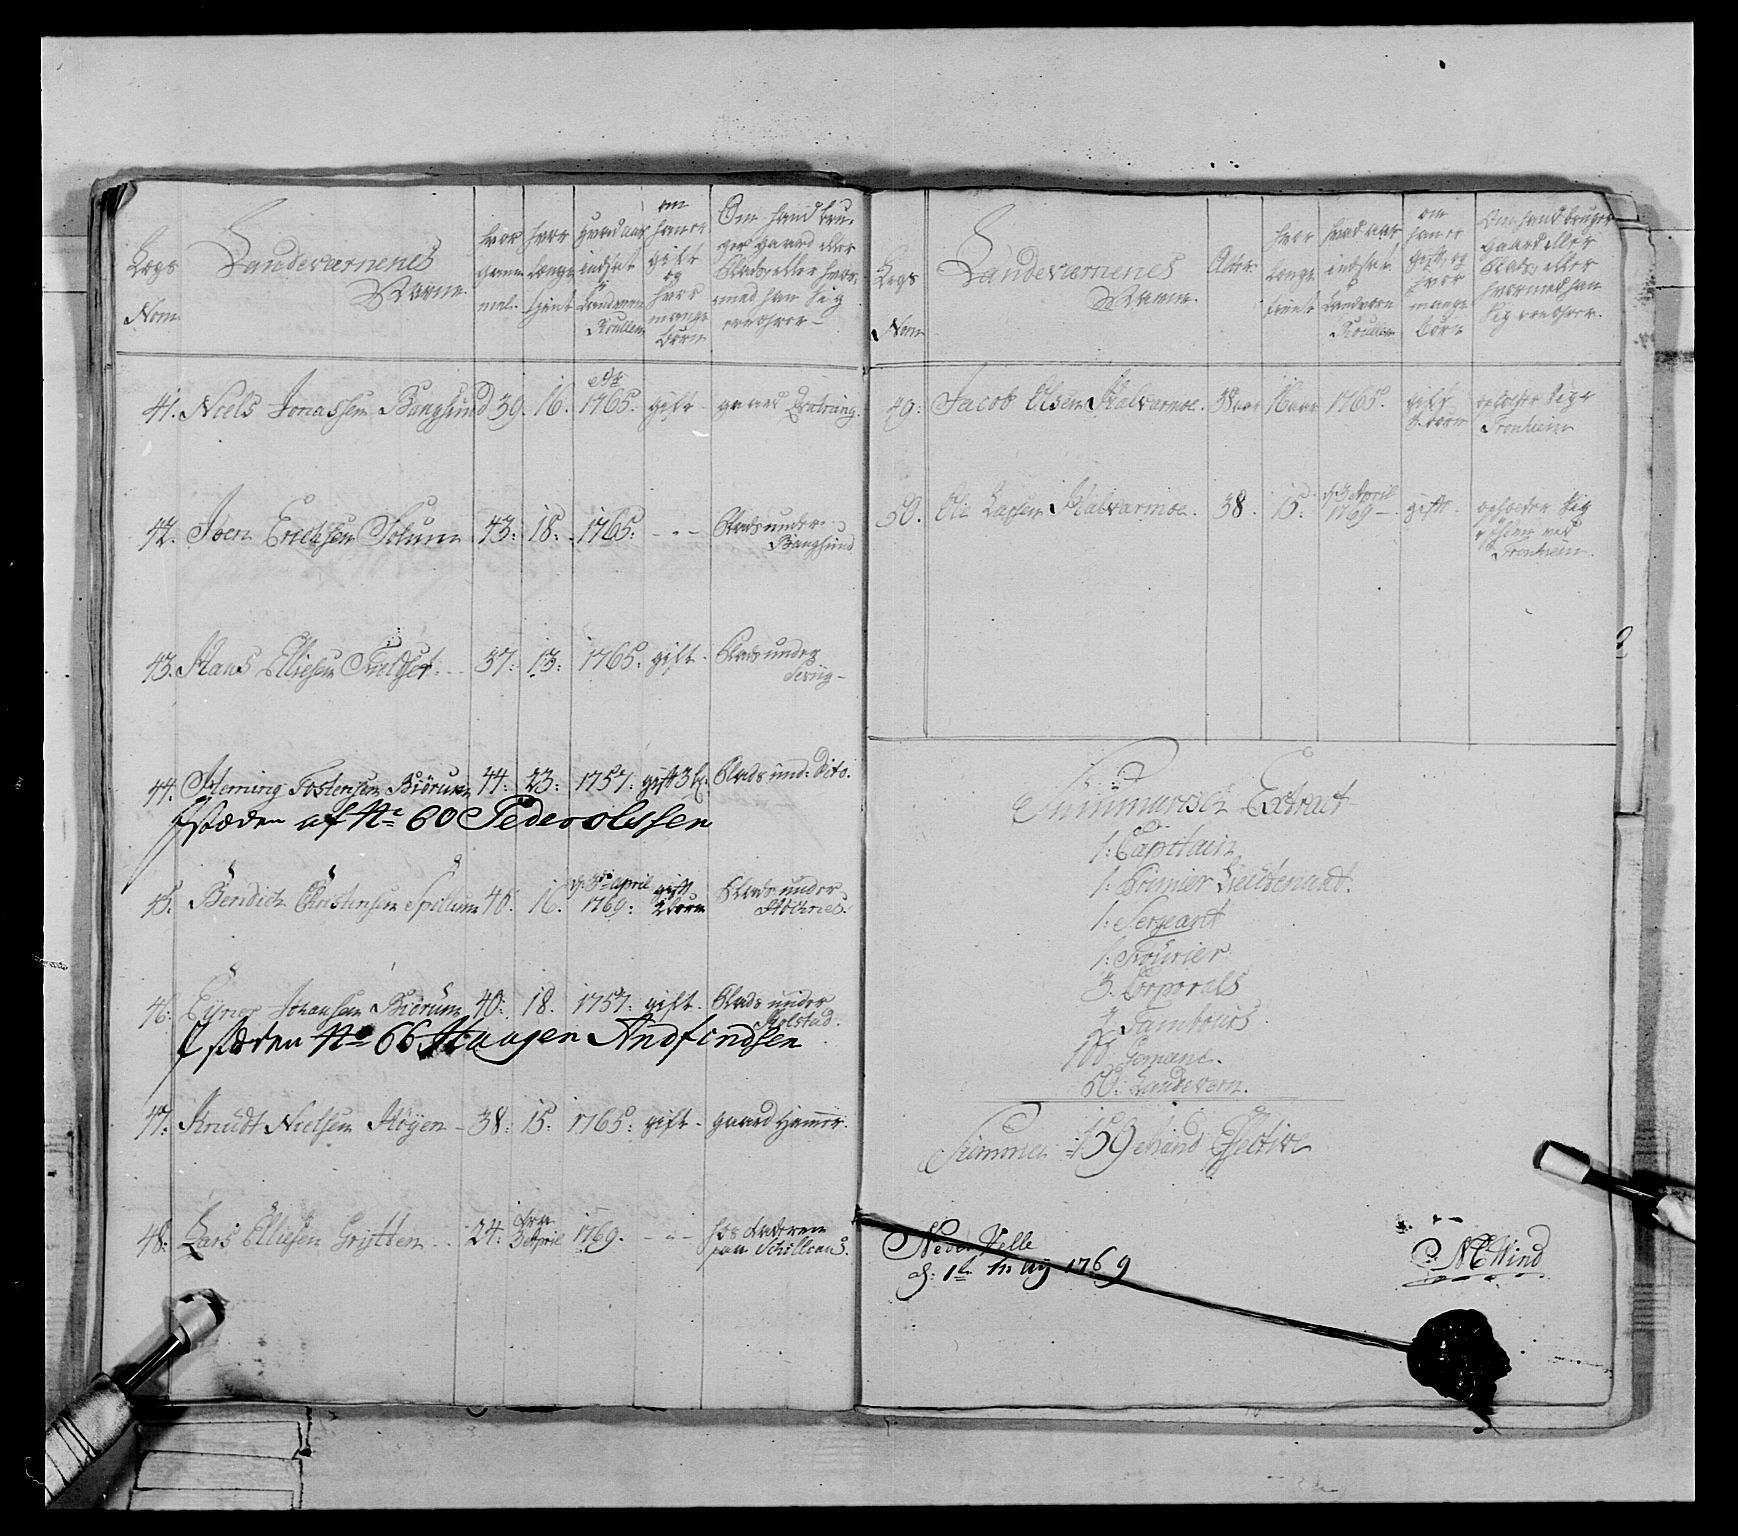 Legs
Nom
Landeværnenes
Navne.
hvor
gam-
mel.
hvor
længe
tient
hvad aar
indsat
i
Landværn
Roullen
om
han er
gift
og
hvor
mange
børn
Om hand bru-
ger gaard eller
Plads, eller hvor-
med han sig
ernährer
41. Niels Jonassen Bangsund 39. 16. 1765. gift gaard
42. Joen Erichsen Solum 43: 18: 1765: - - - Plads under
Bangsund
43. Hans Elliesen 37: 13: 1765. gift. Plads under
44. Heming Tostensen Biörum 44. 23: 1757. gift 3 b. Plads und: dito.
I stæden af No 60 Peder olessen
45. Bendict Christensen Spillum 46. 16. d. 3de april 1769: gift 2 børn Plads under
46. Eyner Johansen Biörum 40: 18. 1757: gift. Plads under
Kolstad.
I stæden No 66 Haagen Andfindsen
47: Knudt Nielsen Høyen 38: 15. 1765: gift - gaard Hammer.
48: Lars Elliesen Grytten 24: fra 3 April 1769. - - - hos Faderen
paa
Legs
Nom
Landeværnenes
Navne.
Alder.
hvor
længe
tient
hvad aar
indsat
i
Landværn
Roullen
om
han er
gift, og
hvor
mange
børn
Om hand bruger
gaard eller
Plads, eller
hvormed han
sig ernährer.
49: Jacob Olsen Halvarmoe. 38 aar 16 aar 1765. gift
børn opholder sig i
Tronhiem
50. Ole Larsen Halvarmoe. 38. 15: d. 3 April
1769 gift. opholder sig
ved
Tronhiem.
Summarisk Extract
1: Capitain
1: Premier Lieutenant.
1: Sergeant
1: Fourier
3. Corporals
2 Tambours
100. Gemene.
50. Landevern.
Summa 159 Mand Effective
Neder Velle
d: 1te May 1769
M Wind